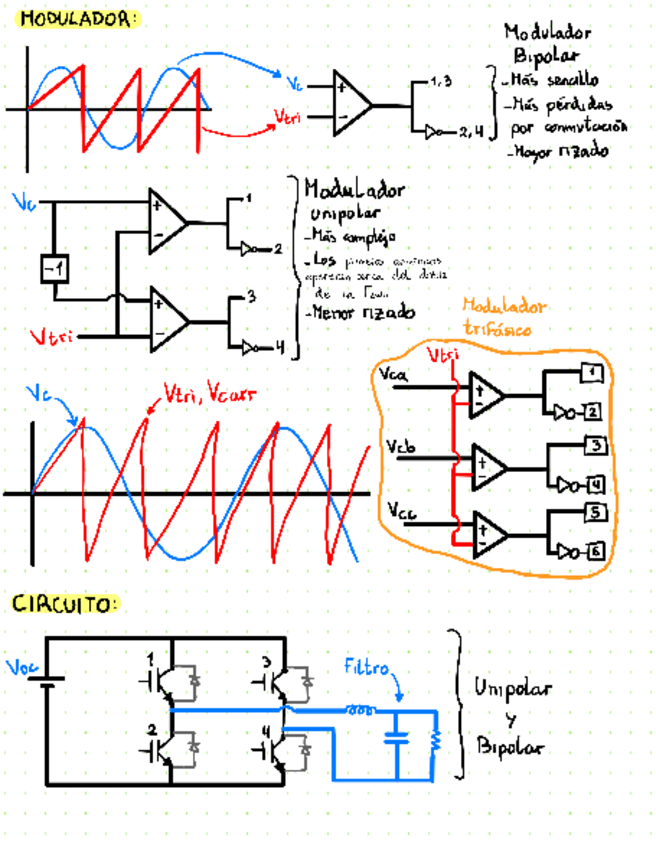 MODULADOR:
Vc
Vtri
+
-
1,3
2,4
Modulador
Bipolar
-Más sencillo
-Más pérdidas
por conmutación
-Mayor rizado
Vc
-1
Vtri
+
-
+
-
1
2
3
4
Modulador
unipolar
-Más complejo
-Los
aparecen cerca del doble
de la
-Menor rizado
Modulador
trifásico
Vtri
Vca
+
-
1
2
Vcb
+
-
3
4
Vcc
+
-
5
6
Vc
Vtri, Vcarr
CIRCUITO:
VDC
1
3
2
4
Filtro
Unipolar
y
Bipolar